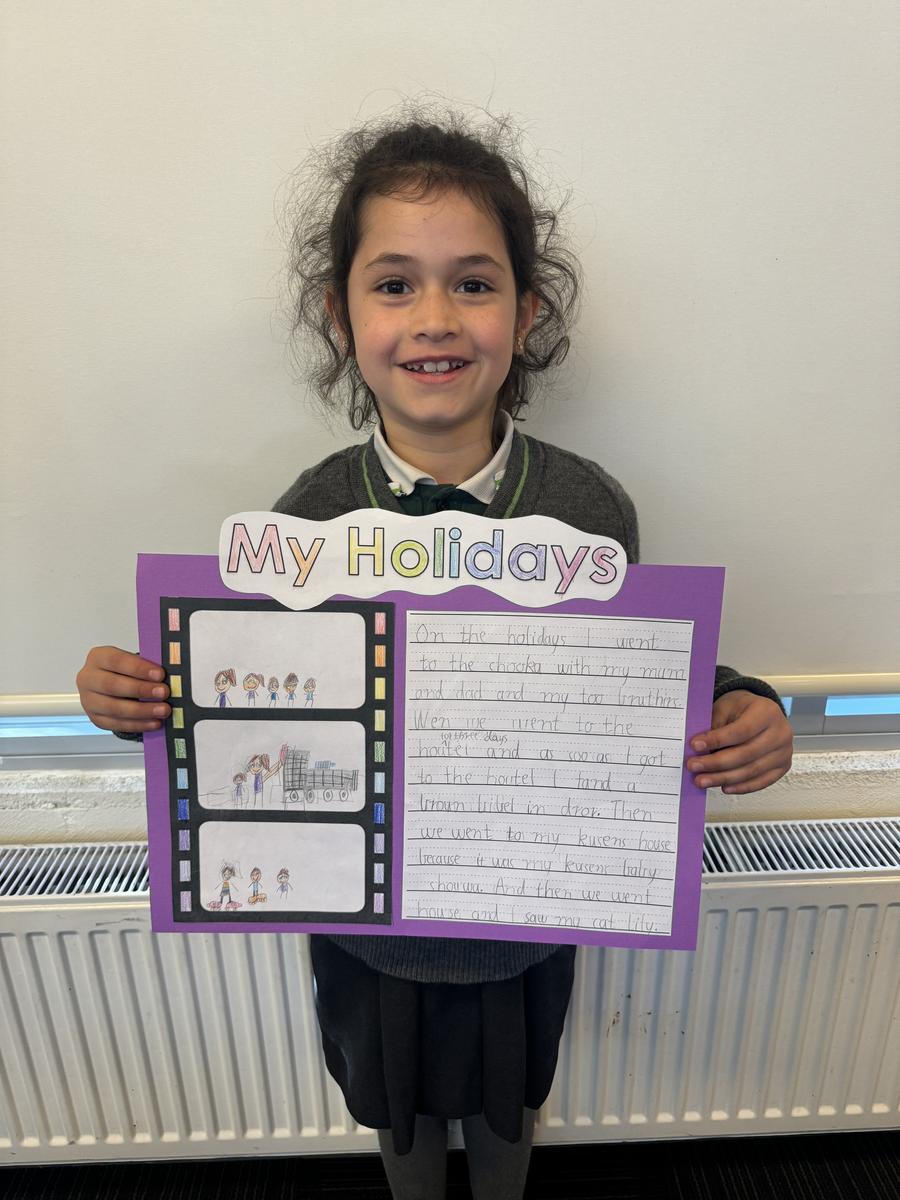 My Holidays
On the holidays I went
to the chooka with my mum
and dad and my too bruthirs.
Wen we went to the
for three days
hoitel and as soo as I got
to the houtel I fand a
brown bibel in dror. Then
we went to my kusens house
because it was my kusens baby
showa. And then we went
house and I saw my cat lily.